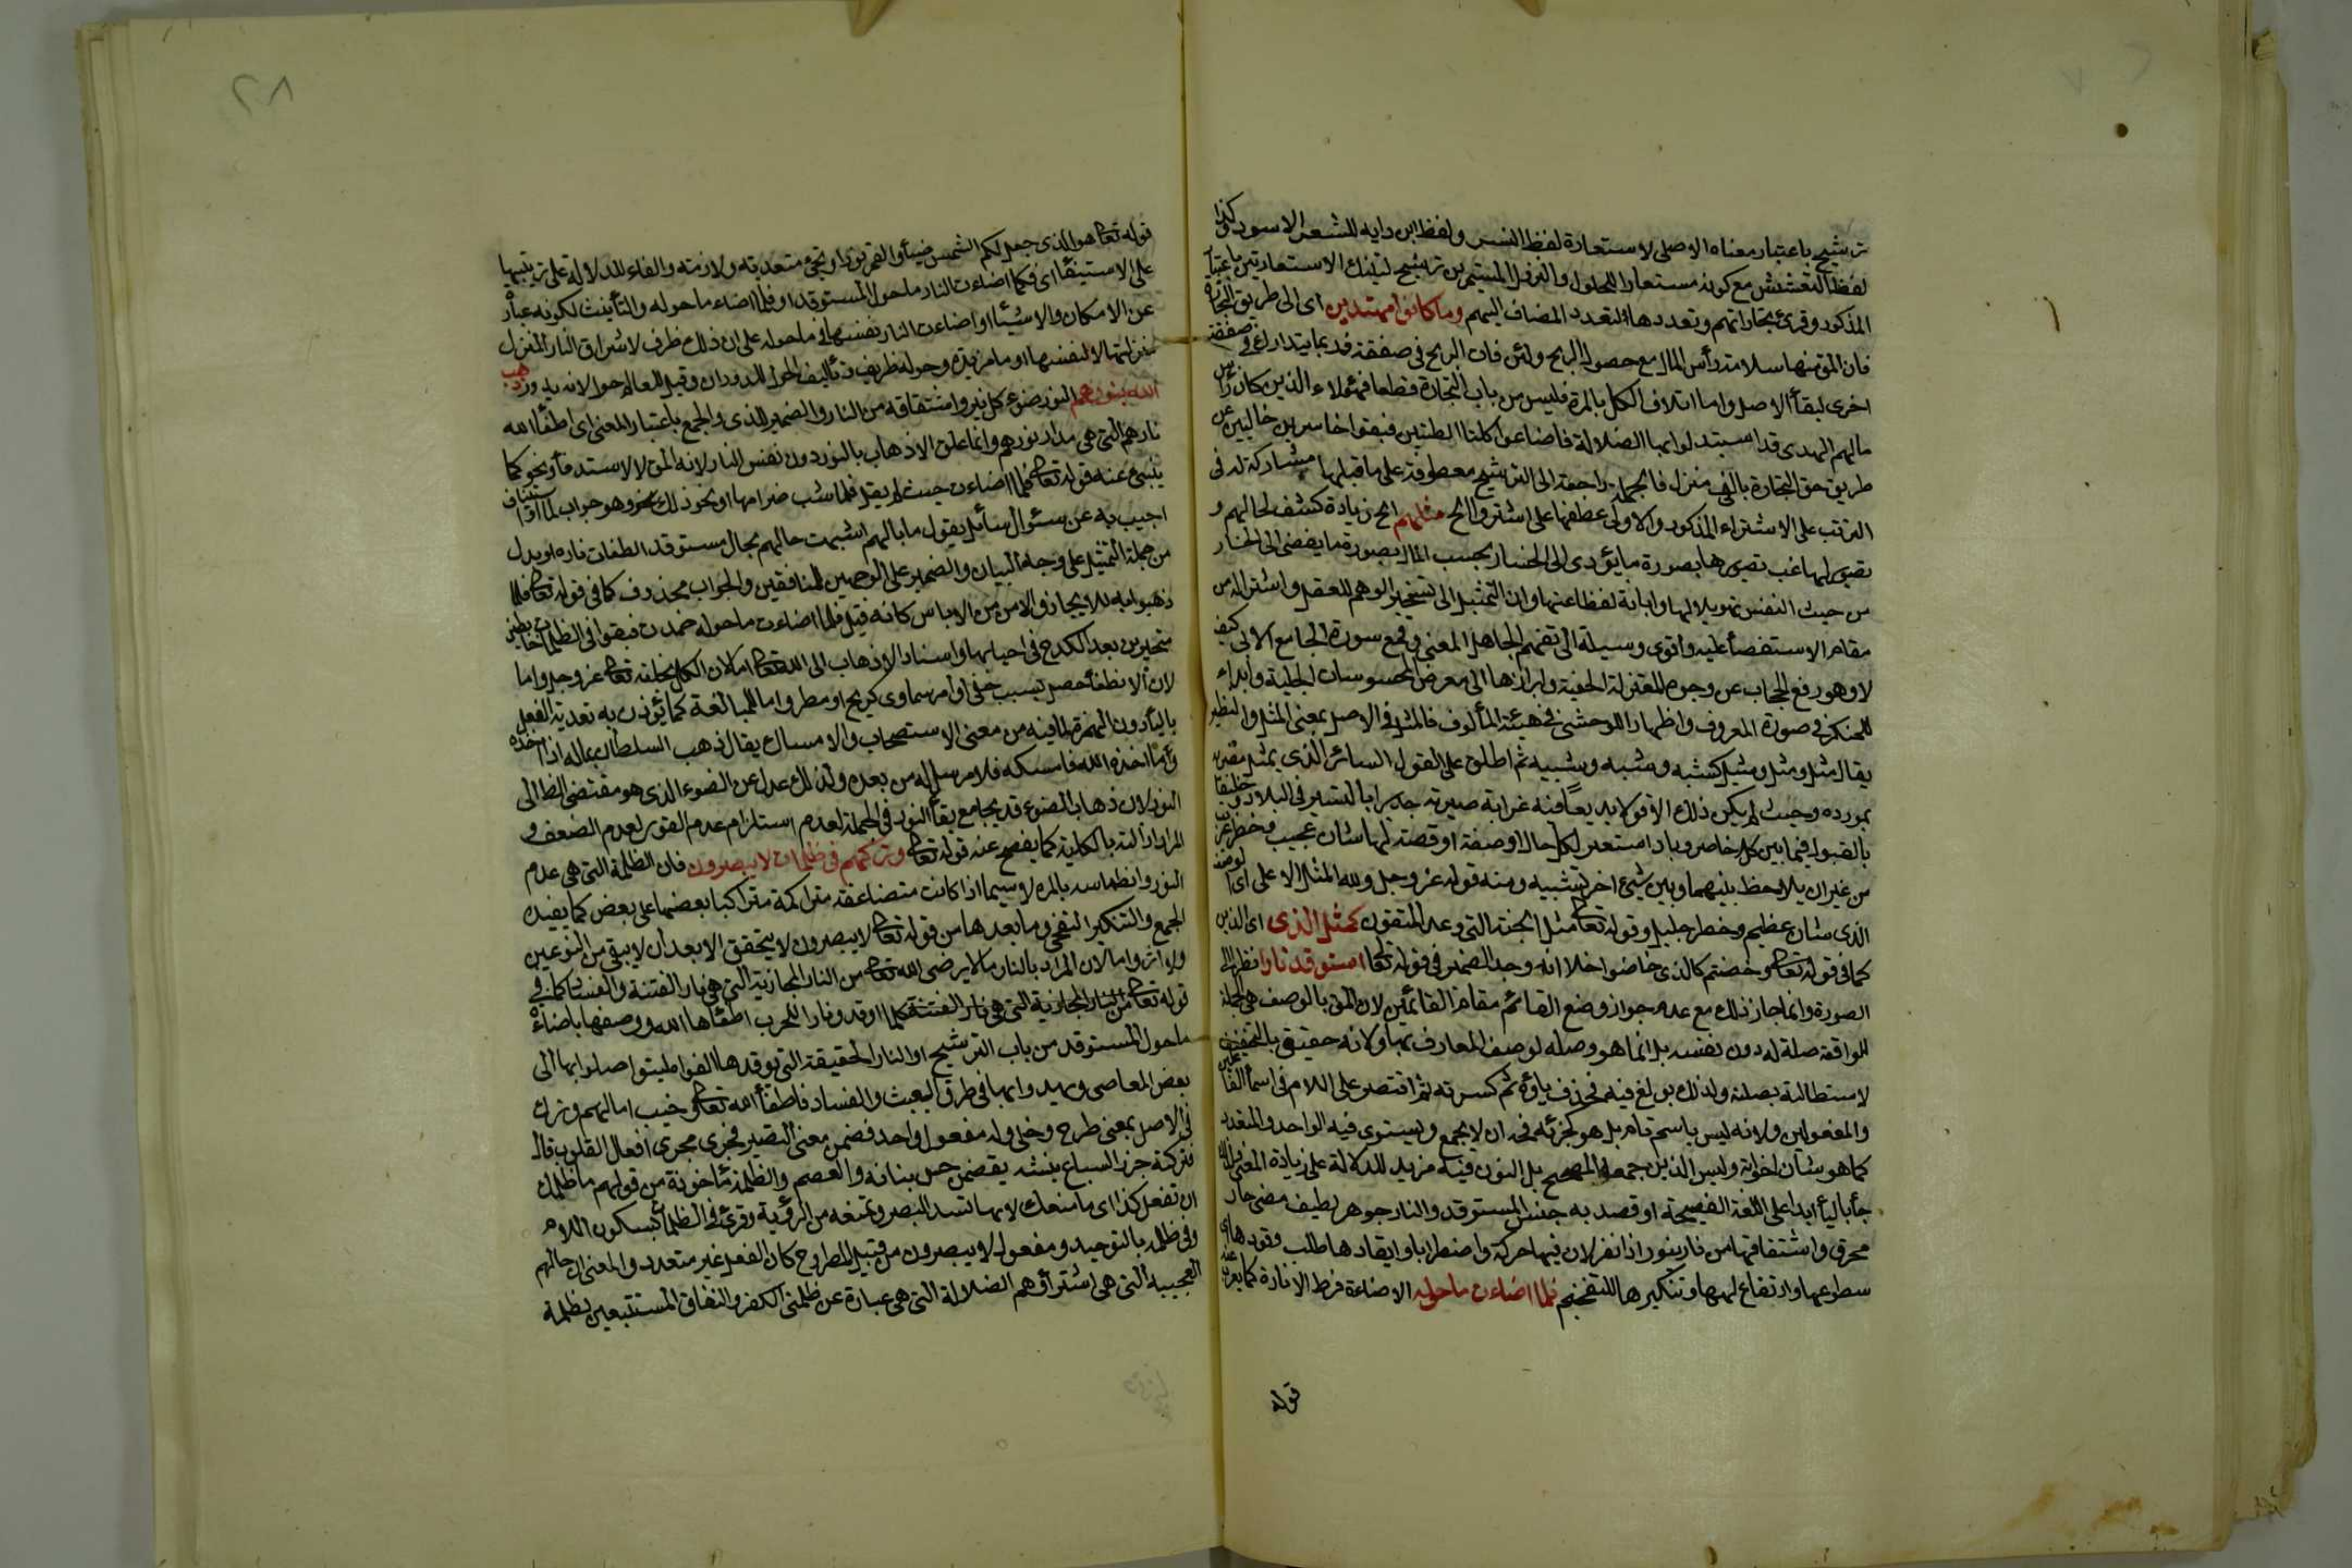 ترشيح باعتبار معناه الاصلى لاستعارة لفظ النسر ولفظ ابن دايه للشعر الاسود وكذا
لفظ التعشيش مع كونه مستعارا للحلول والنزول المستمرين ترشيح لتينك الاستعارتين باعتبار
المذكور وقرئ تجاراتهم وتعددها لتعدد المضاف اليهم وما كانوا مهتدين اى الى طريق التجارة
فان المق منها سلامة رأس المال مع حصول الربح ولئن فات الربح فى صفقة فربما يتدارك فى صفقة
اخرى لبقأ الاصل واما اتلاف الكل بالمرة فليس من باب التجارة قطعا فهؤلاء الذين كان رأس
مالهم الهدى قد استبدلوا بها الضلالة فاضاعوا كلتا الطلبتين فبقوا خاسرين خائبين عن
طريق حق التجارة بالف منزل فالجملة راجعة الى الترشيح معطوفة على ما قبلها مشاركة له فى
الترتب على الاشتراء المذكور والاولى عطفها على اشتروا الخ مثلهم الخ زيادة كشف لحالهم و
تصوير لها غب تصويرها بصورة ما يؤدى الى الخسار بحسب المال بصورة ما يفضى الى الخسار
من حيث النفس تهويلا لها وابانة لفظاعتها وان التمثيل الى تسخير الوهم للعقل واستنزاله من
مقام الاستقصأ عليه واقوى وسيلة الى تفهيم الجاهل المعنى وقمع سورة الجامح الابى كيف
لا وهو رفع الحجاب عن وجوه المعقولة الخفية وابراز لها الى معرض المحسوسات الجلية وابداء
للمنكر فى صورة المعروف واظهار للوحشى فى هيئة المألوف فالمثل فى الاصل بمعنى المثل والنظير
يقال مثل ومثل ومثيل كشبه وشبه وشبيه ثم اطلق على القول السائر الذى يمثل مضربه
بمورده وحيث لم يكن ذلك الا قولا بديعا فيه غرابة صيرته جديرا بالتسيير فى البلاد وخليقا
بالقبول فيما بين كل حاضر وباد استعير لكل حال او صفة او قصة لها شان عجيب وخطر غريب
من غير ان يلاحظ بينهما وبين شئ اخر تشبيه ومنه قوله عز وجل ولله المثل الاعلى اى الوصف
الذى شان عظيم وخطر جليل وقوله تعا مثل الجنة التى وعد المتقون كمثل الذى اى الذين
كما فى قوله تعا وخضتم كالذى خاضوا خلا انه وحد الضمير فى قوله تعا استوقد نارا نظرا الى
الصورة وانما جاز ذلك مع عدم جواز وضع القائم مقام القائمين لان المق بالوصف هى الجملة
الواقعة صلة له دون نفسه بل انما هو وصلة لوصف المعارف بها ولانه حقيق بالتخفيف
لاستطالته بصلته ولذلك بولغ فيه فحذف ياؤه ثم كسرته ثم اقتصر على اللام فى اسمأ الفاعلين
والمفعولين ولانه ليس باسم تام بل هو كجزئه فحقه ان لا يجمع ويستوى فيه الواحد والمتعدد
كما هو شأن اخواته وليس الذين جمعه المصحح بل النون فيه مزيد للدلالة على زيادة المعنى ولذلك
جأ باليأ ابدا على اللغة الفصيحة او قصد به جنس المستوقد والنار جوهر لطيف مضئ حار
محرق واشتقاقها من نار ينور اذا نفر لان فيها حركة واضطرابا وايقادها طلب وقودها اى
سطوعها وارتفاع لهبها وتنكيرها للتفخيم فلما اضاءت ما حوله الاضاءة فرط الانارة كما يعرب عنه
قوله
٢٨
قوله تعا هو الذى جعل لكم الشمس ضيأ والقمر نورا وتجئ متعدية ولازمة والفاء للدلالة على ترتبها
على الاستيقاد اى فكما اضاءت النار ما حول المستوقد او فلما اضاء ما حوله والتأنيث لكونه عبارة
عن الامكان والاشيأ او اضاءت النار نفسها فى ما حوله على ان ذلك ظرف لاشراق النار المنزل
منزلتها لا لنفسها او ما مزيدة وحوله ظريف وتأليف الحول للدوران وقيل للعام حول لانه يدور ذهب
الله بنورهم النور ضوء كل نير واشتقاقه من النار والضمير للذى والجمع باعتبار المعنى اى اطفأ الله
نارهم التى هى مدار نورهم وانما علق الاذهاب بالنور دون نفس النار لانه المق لا الاستدفأ ونحو كما
ينبئ عنه قوله تعا فلما اضاءت حيث لم يقل فلما شب ضرامها او نحو ذلك وهو جواب لما او استيناف
اجيب به عن سئوال سائل يقول ما بالهم اشبهت حالهم بحال مستوقد الطفات ناره او بدل
من جملة التمثيل على وجه البيان والضمير على الوجهين للمنافقين والجواب محذوف كما فى قوله تعا فلما
ذهبوا به للايجاز والامن من الالباس كانه قيل فلما اضاءت ما حوله خمدت فبقوا فى الظلمات خابطين
متحيرين بعد الكدح فى احيائها واسناد الاذهاب الى الله تعا اما لان الكل بخلقه تعا عز وجل واما
لان الانطفأ حصل بسبب خفى او امر سماوى كريح او مطر واما للمبالغة كما يؤذن به تعدية الفعل
باليأ دون الهمزة لما فيه من معنى الاستصحاب والامساك يقال ذهب السلطان بماله اذا اخذه
وما اخذه الله فامسكه فلا مرسل له من بعده ولذلك عدل عن الضوء الذى هو مقتضى الظ الى
النور لان ذهاب الضوء قد يجامع بقأ النور فى الجملة لعدم استلزام عدم القوى لعدم الضعف و
المراد ازالته بالكلية كما يفصح عنه قوله تعا وتركهم فى ظلمات لا يبصرون فان الظلمة التى هى عدم
النور وانطماسه بالمرة لا سيما اذا كانت متضاعفة متراكمة متراكبا بعضها على بعض كما يفيده
الجمع والتنكير التفخمى وما بعدها من قوله تعا لا يبصرون لا يتحقق الا بعد ان لا يبقى من النور عين
ولا اثر واما لان المراد بالنار ما لا يرضى الله تعا من النار المجازية التى هى نار الفتنة والفساد كما فى
قوله تعا من النار المجازية التى هى نار الفتنة كلما اوقدوا نارا للحرب اطفأها الله ووصفها باضاءة
ما حول المستوقد من باب الترشيح او النار الحقيقة التى توقدها الغواة ليتوصلوا بها الى
بعض المعاصى ويهدوا بها فى طرق العبث والفساد فاطفأ الله تعا وخيب امالهم وترك
فى الاصل بمعنى طرح وخلى وله مفعول واحد فضمن معنى التصيير فجرى مجرى افعال القلوب قال
فتركته جزر السباع ينشه يقضمن حسن بنانه والمعصم والظلمة مأخوذة من قولهم ما ظلمك
ان تفعل كذا اى ما منعك لانها تسد البصر وتمنعه من الرؤية وقرئ فى ظلمات بسكون اللام
وفى ظلمة بالتوحيد ومفعول لا يبصرون من قبيل المطروح كان الفعل غير متعدد والمعنى ان حالهم
العجيبة التى هى اشتراؤهم الضلالة التى هى عبارة عن ظلمتى الكفر والنفاق المستتبعين لظلمة